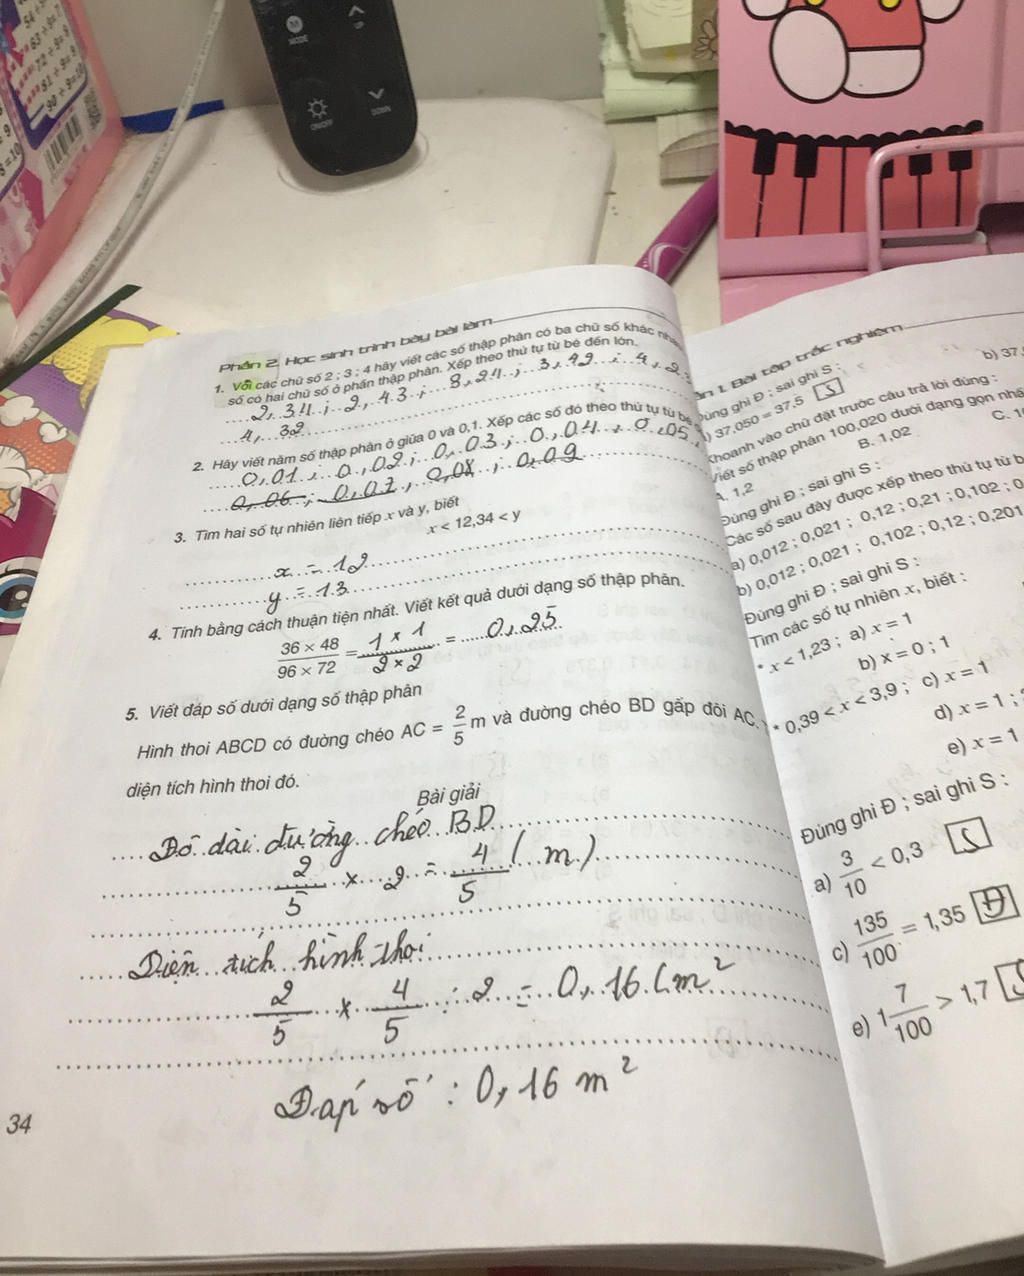 MODE
UP
ON/OFF
DOWN
63 ÷ 9 = 7
72 ÷ 9 = 8
81 ÷ 9 = 9
90 ÷ 9 = 10
Phần 2. Học sinh trình bày bài làm
1. Với các chữ số 2 ; 3 ; 4 hãy viết các số thập phân có ba chữ số khác nhau
số có hai chữ số ở phần thập phân. Xếp theo thứ tự từ bé đến lớn.
2,34 ; 2,43 ; 3,24 ; 3,42 ; 4,23
4,32
2. Hãy viết năm số thập phân ở giữa 0 và 0,1. Xếp các số đó theo thứ tự từ bé
0,01 ; 0,02 ; 0,03 ; 0,04 ; 0,05
0,06 ; 0,07 ; 0,08 ; 0,09
3. Tìm hai số tự nhiên liên tiếp x và y, biết
x < 12,34 < y
x = 12
y = 13
4. Tính bằng cách thuận tiện nhất. Viết kết quả dưới dạng số thập phân.
36 × 48 / 96 × 72 = 1 × 1 / 2 × 2 = 0,25
5. Viết đáp số dưới dạng số thập phân
Hình thoi ABCD có đường chéo AC = 2/5 m và đường chéo BD gấp đôi AC.
diện tích hình thoi đó.
Bài giải
Độ dài đường chéo BD
2/5 × 2 = 4/5 (m)
Diện tích hình thoi
2/5 × 4/5 : 2 = 0,16 (m²
Đáp số : 0,16 m²
34
1. Bài tập trắc nghiệm
Đúng ghi Đ ; sai ghi S :
37,050 = 37,5 S
b) 37,
Khoanh vào chữ đặt trước câu trả lời đúng :
Viết số thập phân 100,020 dưới dạng gọn nhất
A. 1,2
B. 1,02
C.
Đúng ghi Đ ; sai ghi S :
Các số sau đây được xếp theo thứ tự từ b
a) 0,012 ; 0,021 ; 0,12 ; 0,21 ; 0,102 ; 0
b) 0,012 ; 0,021 ; 0,102 ; 0,12 ; 0,201
Đúng ghi Đ ; sai ghi S :
Tìm các số tự nhiên x, biết :
* x < 1,23 ; a) x = 1
b) x = 0 ; 1
* 0,39 < x < 3,9 ; c) x = 1
d) x = 1 ;
e) x = 1
Đúng ghi Đ ; sai ghi S :
a) 3/10 < 0,3 S
c) 135/100 = 1,35 Đ
e) 1 7/100 > 1,7 S